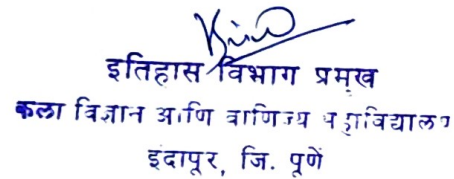 इतिहास विभाग प्रमुख
कला विज्ञान आणि वाणिज्य महाविद्यालय
इंदापूर, जि. पूणे